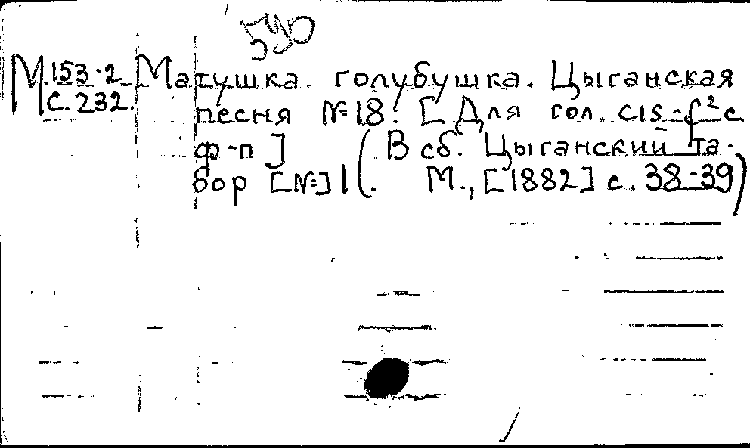 590
М 153-2 Матушка голубушка. Цыганская
С. 232 песня №18. [Для гол. cis-f² с
ф-п] (В сб. Цыганский та-
бор [№] 1. М., [1882] с. 38-39)